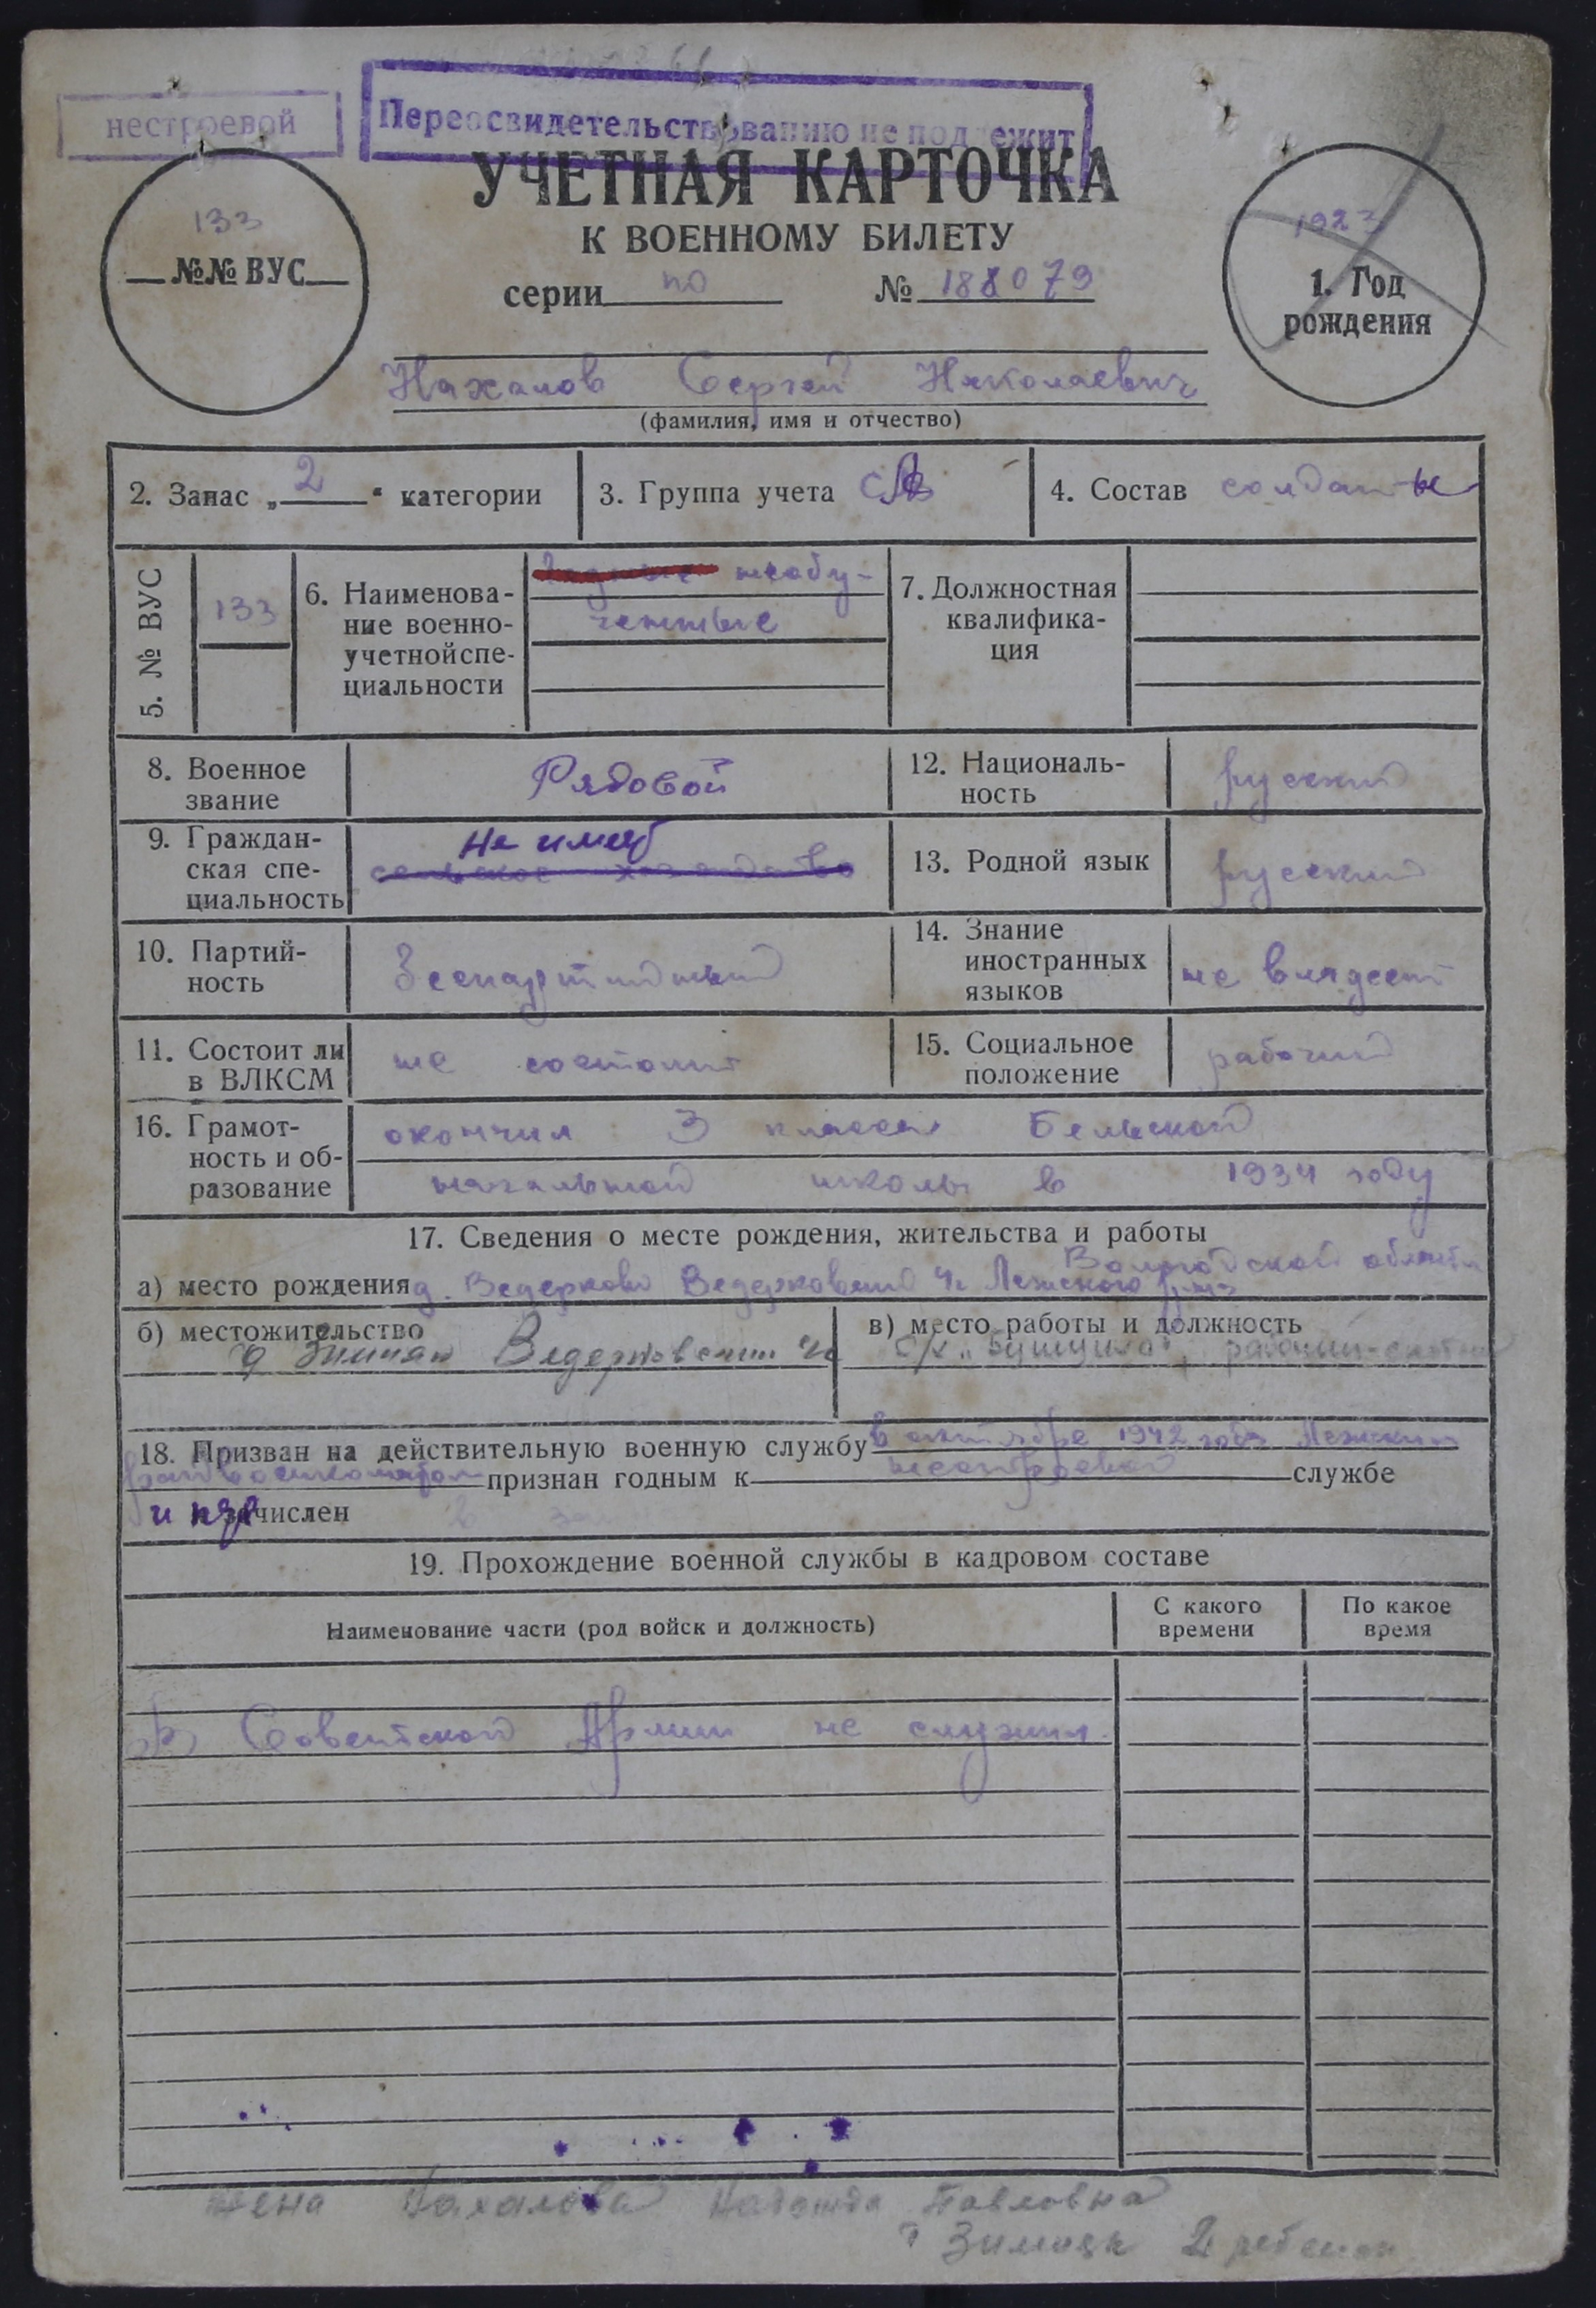 нестроевой
Переосвидетельствованию не подлежит
УЧЕТНАЯ КАРТОЧКА
К ВОЕННОМУ БИЛЕТУ
серии по № 188079
133
№№ ВУС
1923
1. Год
рождения
Нахалов Сергей Николаевич
(фамилия, имя и отчество)
2. Запас „2“ категории
3. Группа учета СА
4. Состав солдаты
5. № ВУС
133
6. Наименова-
ние военно-
учетной спе-
циальности
необу-
ченные
7. Должностная
квалифика-
ция
8. Военное
звание
Рядовой
12. Националь-
ность
русский
9. Граждан-
ская спе-
циальность
Не имеет
сельское хозяйство
13. Родной язык
русский
10. Партий-
ность
Беспартийный
14. Знание
иностранных
языков
не владеет
11. Состоит ли
в ВЛКСМ
не состоит
15. Социальное
положение
рабочий
16. Грамот-
ность и об-
разование
окончил 3 класса Бельской
начальной школы в 1934 году
17. Сведения о месте рождения, жительства и работы
Вологодской области
а) место рождения д. Ведерково Ведерковский Лежского р-на
б) местожительство
д Зимняк Ведерковский
в) место работы и должность
рабочий
18. Призван на действительную военную службу в октябре 1942 года Лежским
райвоенкоматом признан годным к нестроевой службе
и зачислен
19. Прохождение военной службы в кадровом составе
Наименование части (род войск и должность)
С какого
времени
По какое
время
В Советской Армии не служил.
Жена Нахалова Надежда Павловна
Зимняк 2 ребенка